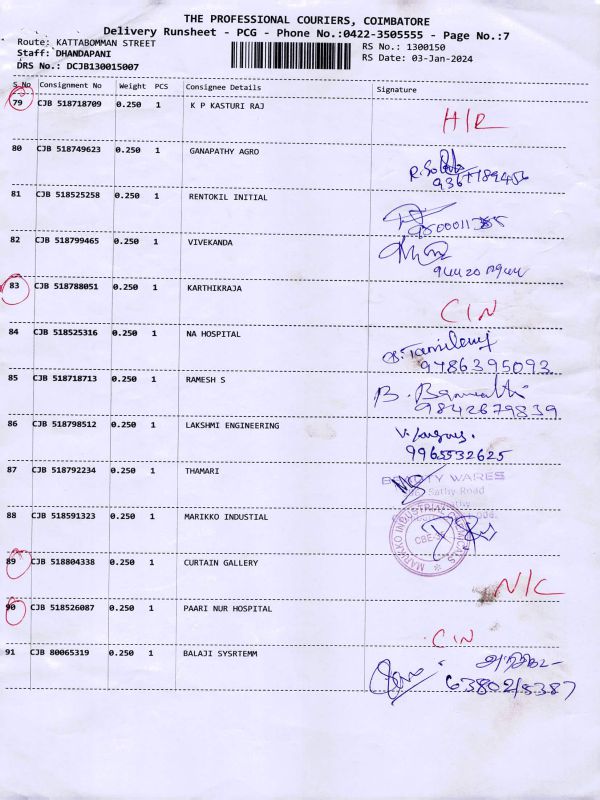 THE PROFESSIONAL COURIERS, COIMBATORE
Delivery Runsheet - PCG - Phone No.:0422-3505555 - Page No.:7
Route: KATTABOMMAN STREET
RS No.: 1300150
Staff: DHANDAPANI
RS Date: 03-Jan-2024
DRS No.: DCJB130015007
S.No Consignment No Weight PCS Consignee Details Signature
79 CJB 518718709 0.250 1 K P KASTURI RAJ
H/R
80 CJB 518749623 0.250 1 GANAPATHY AGRO
81 CJB 518525258 0.250 1 RENTOKIL INITIAL
82 CJB 518799465 0.250 1 VIVEKANDA
83 CJB 518788051 0.250 1 KARTHIKRAJA
C/N
84 CJB 518525316 0.250 1 NA HOSPITAL
9786395093
85 CJB 518718713 0.250 1 RAMESH S
9842679839
86 CJB 518798512 0.250 1 LAKSHMI ENGINEERING
9965532625
87 CJB 518792234 0.250 1 THAMARI
WARES
Sathy Road
88 CJB 518591323 0.250 1 MARIKKO INDUSTIAL
MARIKKO INDUSTRIAL CHEMICALS
CBE
89 CJB 518804338 0.250 1 CURTAIN GALLERY
N/C
90 CJB 518526087 0.250 1 PAARI NUR HOSPITAL
C/N
91 CJB 80065319 0.250 1 BALAJI SYSRTEMM
6380218387